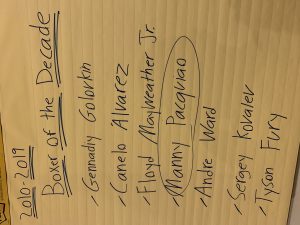 2010-2019
Boxer of the Decade
Gennadiy Golovkin
Canelo Alvarez
Floyd Mayweather Jr.
Manny Pacquiao
Andre Ward
Sergey Kovalev
Tyson Fury